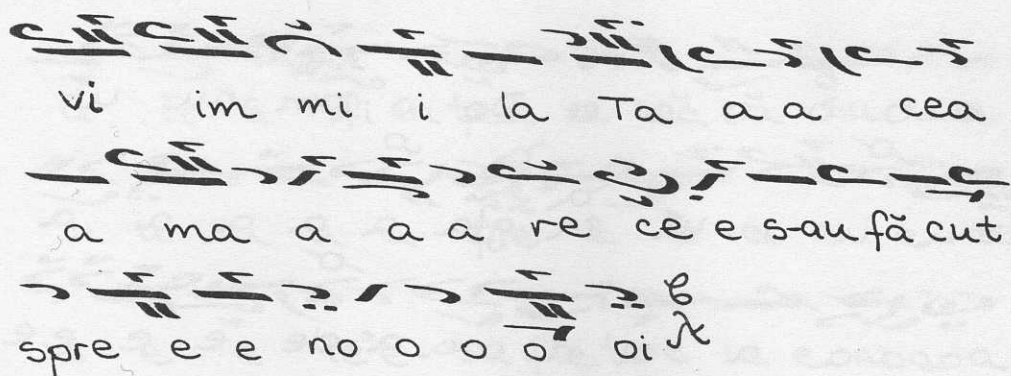 vi im mi i la Ta a a cea
a ma a a a re ce e s-au fă cut
spre e e no o o o oi